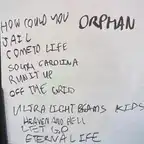 HOW COULD YOU
ORPHAN
JAIL
COME TO LIFE
SOUTH CAROLINA
RUN IT UP
OFF THE GRID
ULTRA LIGHT BEAMS KIDS
HEAVEN AND HELL
LET GO
ETERNAL LIFE